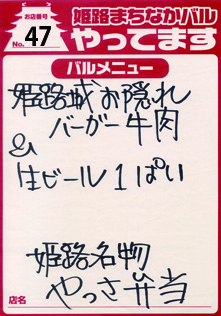 お店番号
No. 47
姫路まちなかバル
やってます
バルメニュー
姫路城お隠れ
バーガー牛肉
&
生ビール1ぱい
姫路名物
やっさ弁当
店名